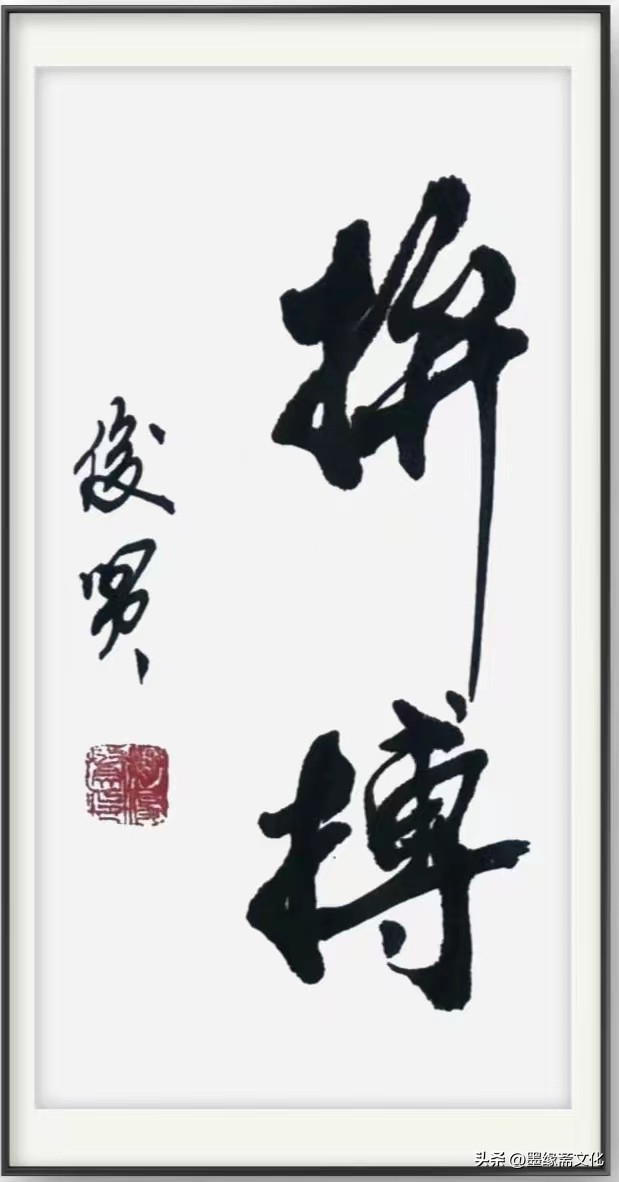 拼搏
俊
头条 @墨缘斋文化